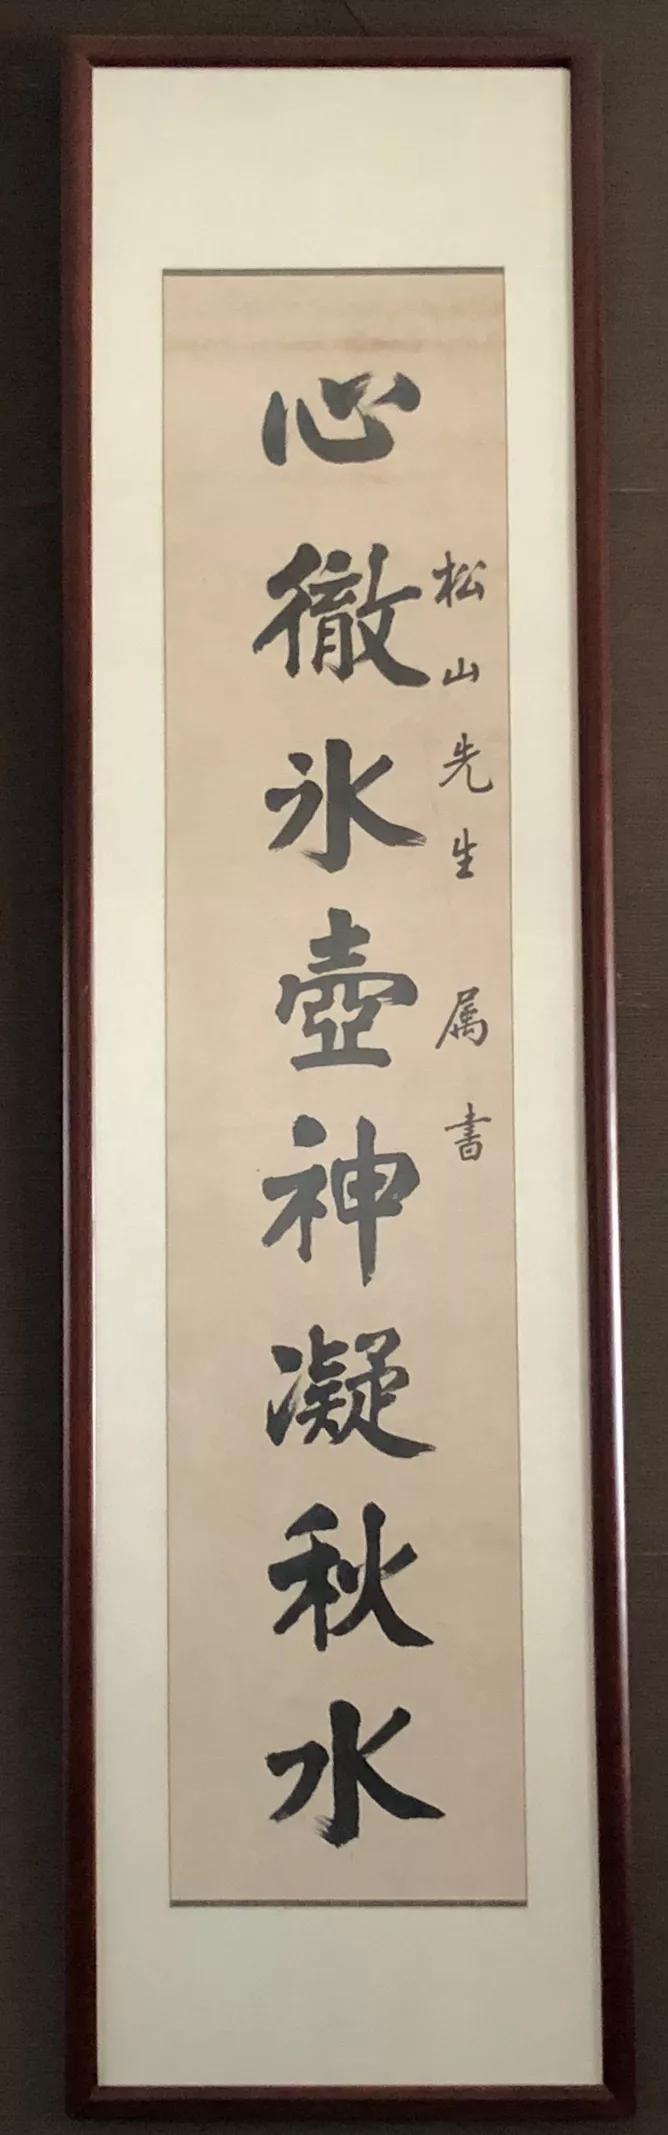 松山先生 属書
心徹氷壺神凝秋水